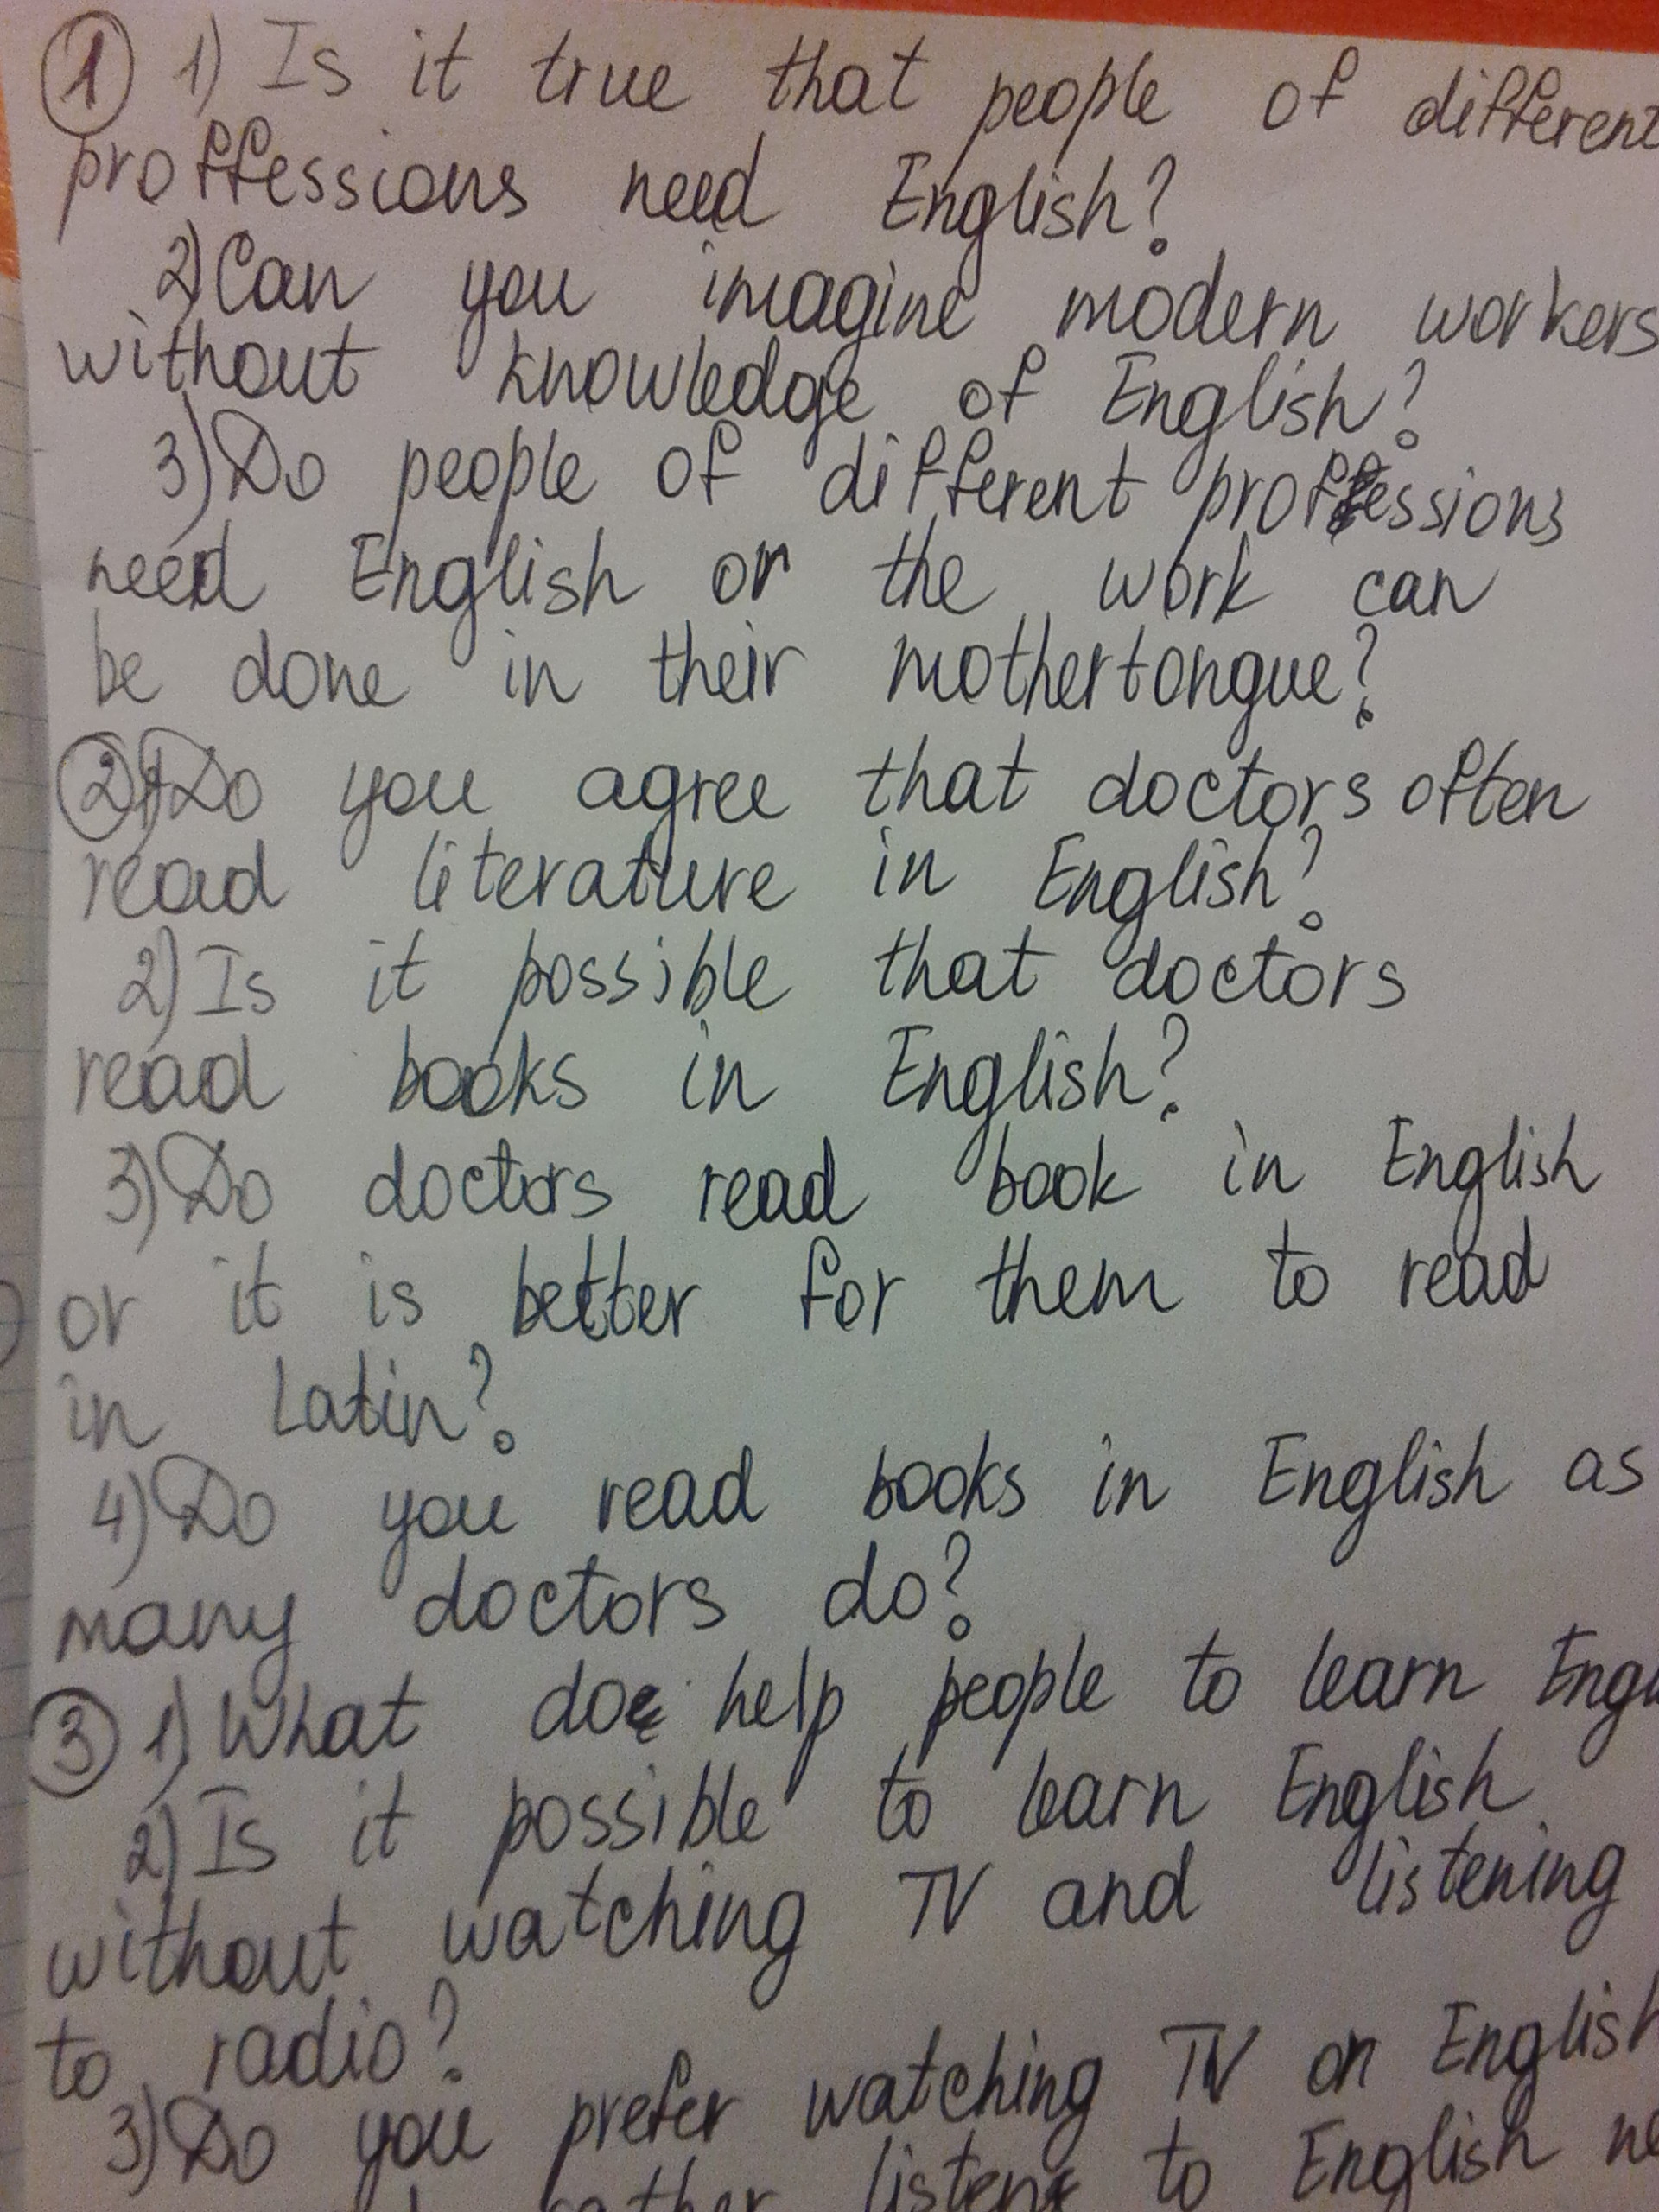 ① 1) Is it true that people of different
proffessions need English?
2) Can you imagine modern workers
without knowledge of English?
3) Do people of different proffessions
need English or the work can
be done in their mothertongue?
② 1) Do you agree that doctors often
read literature in English?
2) Is it possible that doctors
read books in English?
3) Do doctors read book in English
or it is better for them to read
in Latin?
4) Do you read books in English as
many doctors do?
③ 1) What does help people to learn
2) Is it possible to learn English
without watching TV and listening
to radio?
3) Do you prefer watching TV on English
rather listen to English